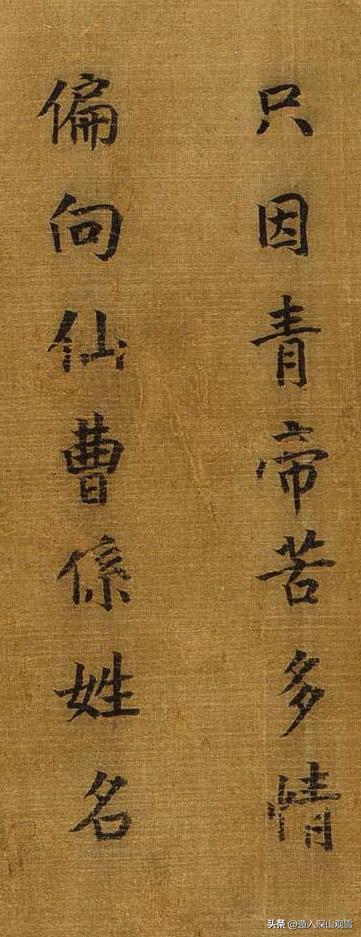 只因青帝苦多情
偏向仙曹係姓名
头条 @遁入深山观雪